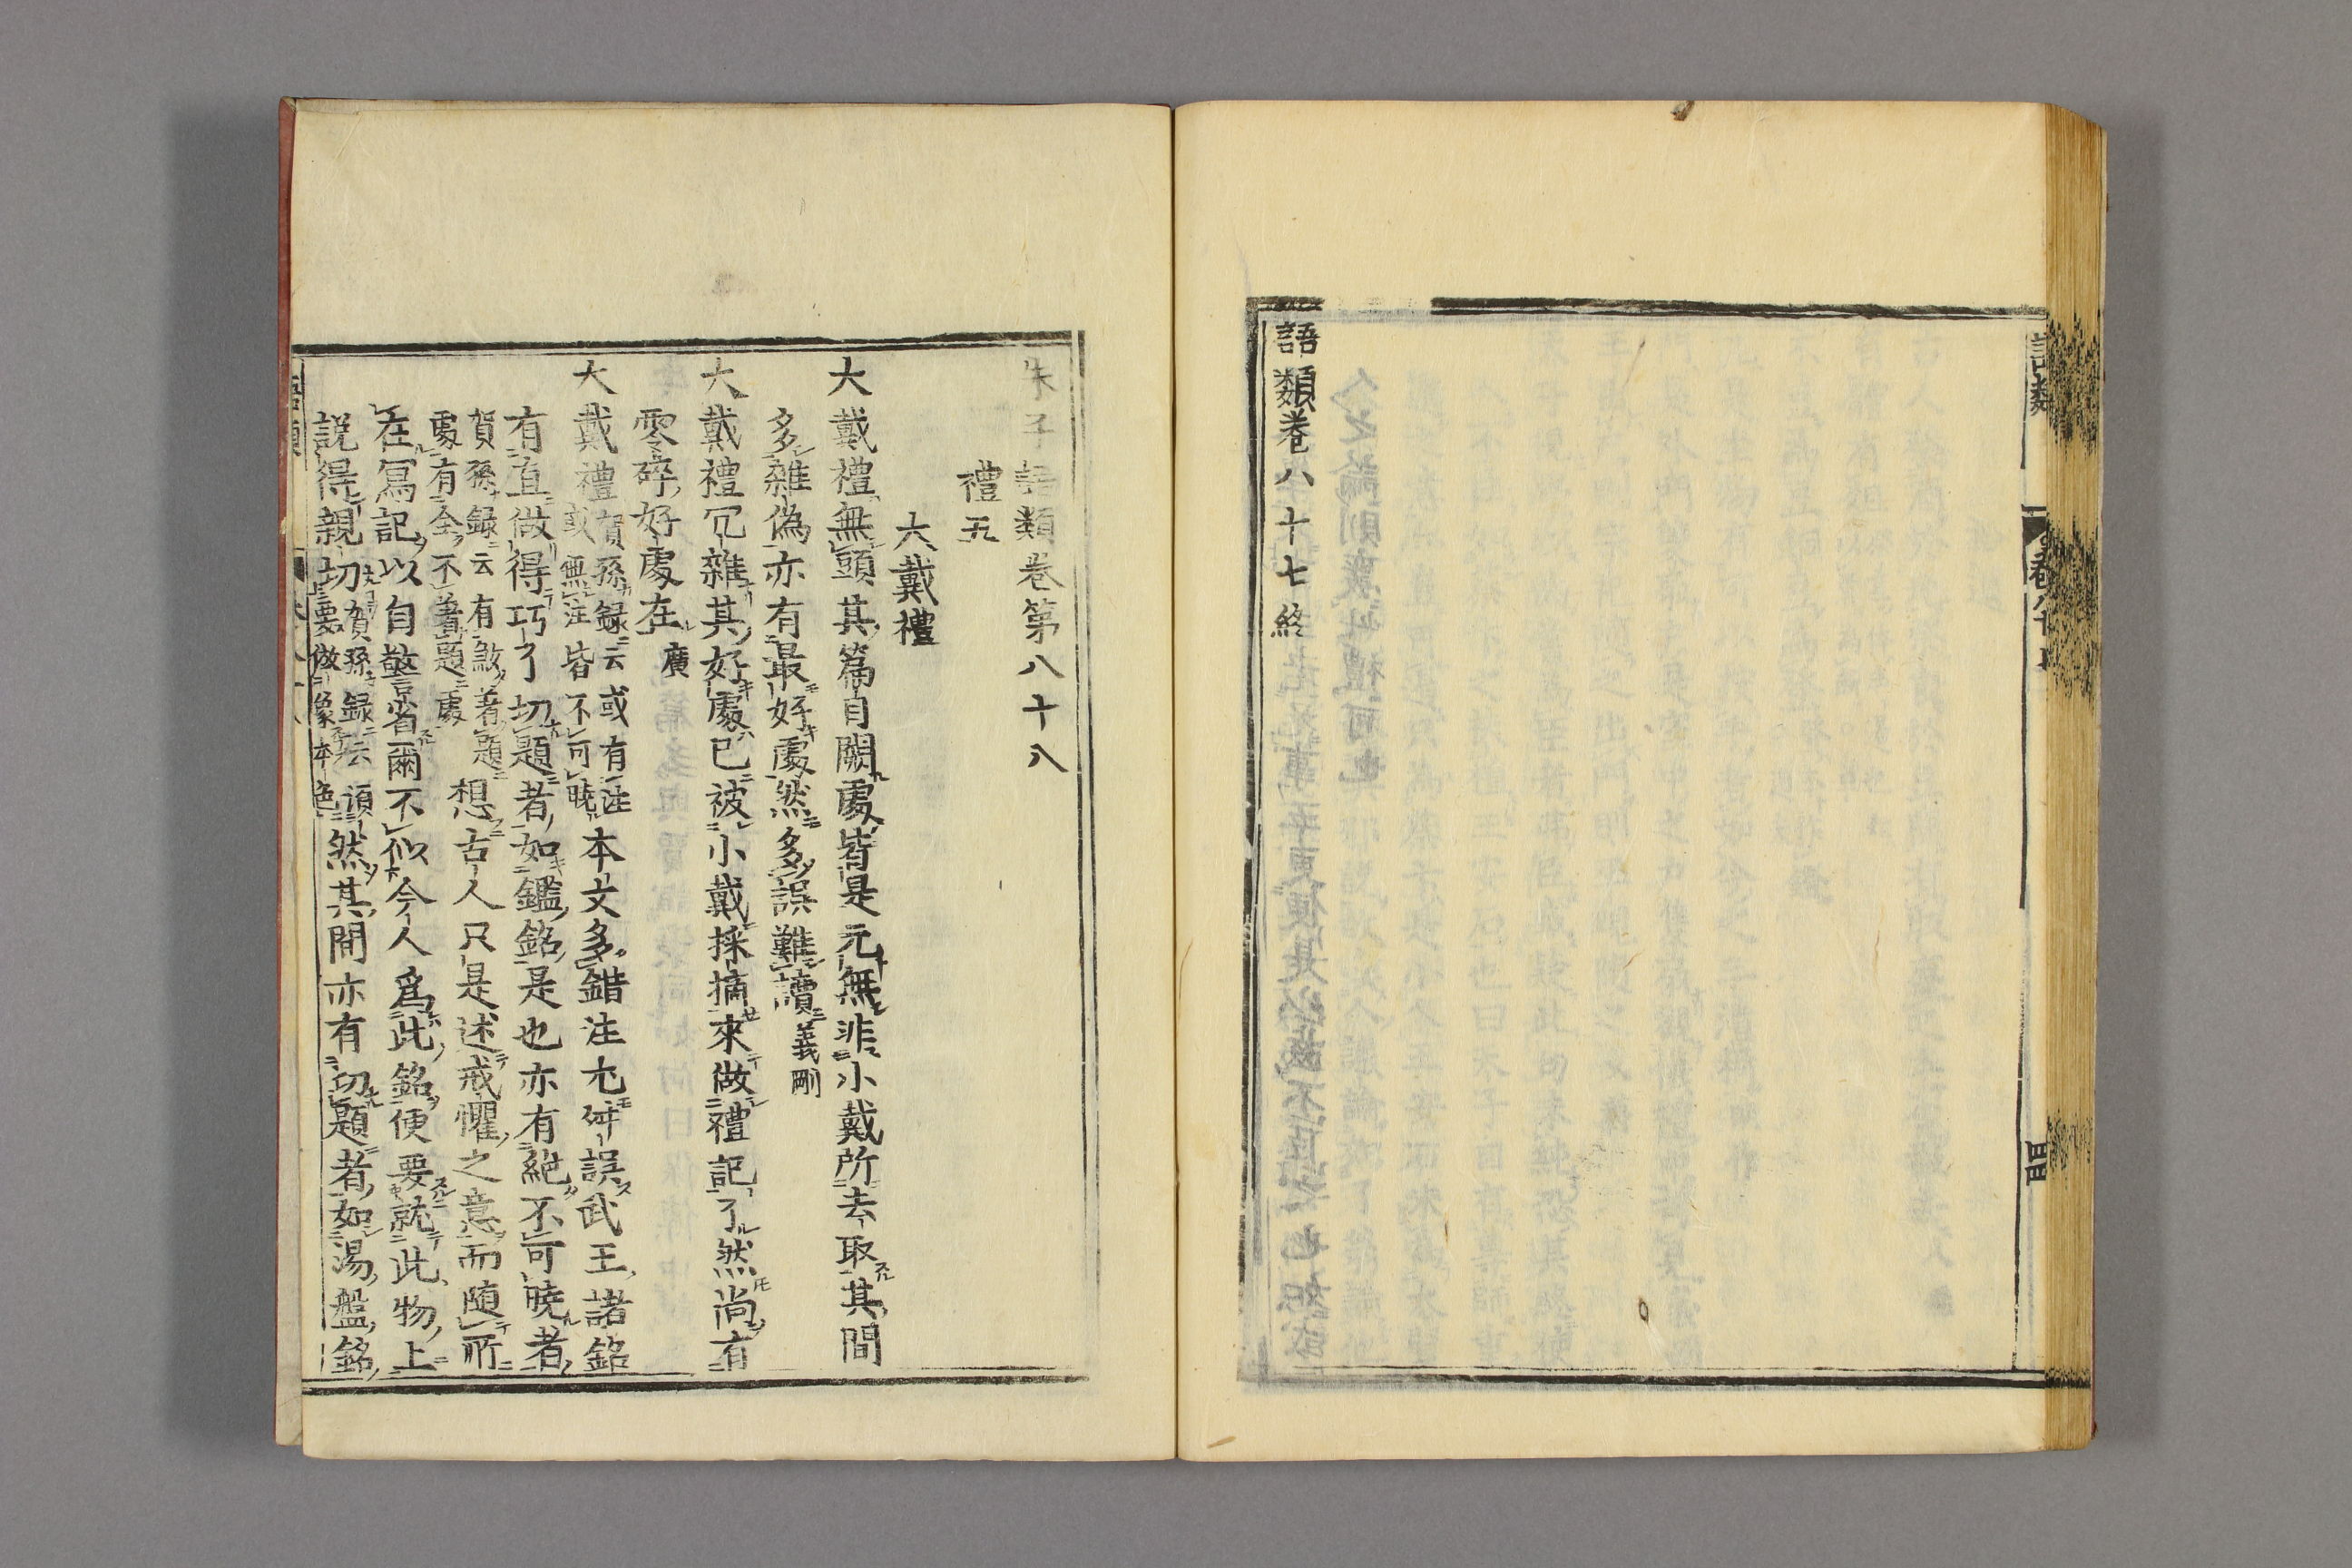 語類卷八十七終
朱子語類卷第八十八
禮五
大戴禮
大戴禮無頭其篇目闕處皆是元無非小戴所去取其間
多雜偽亦有最好處然多誤難讀義剛
大戴禮冗雜其好處已被小戴採摘來做禮記了然尚有
零碎好處在廣
大戴禮賀孫録云或有注或無注皆不可曉本文多錯注尤舛誤武王諸銘
有直做得巧了切題者如鑑銘是也亦有絶不可曉者
賀孫録云有煞著題處有全不著題處想古人只是述戒懼之意而随所
在寫記以自警省爾不似今人爲此銘便要就此物上
説得親切賀孫録云須要做像本色然其間亦有切題者如湯盤銘